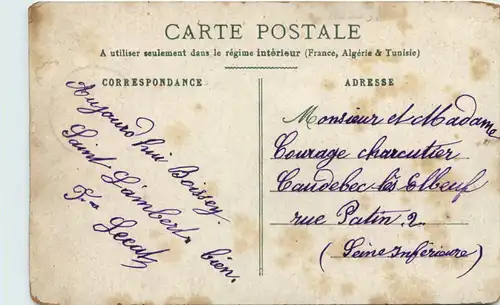 CARTE POSTALE
A utiliser seulement dans le régime intérieur (France, Algérie & Tunisie)
CORRESPONDANCE
Aujourd'hui Boissey.
Saint Lambert, bien.
Lecat
ADRESSE
Monsieur et Madame
Courage charcutier
Caudebec-lès Elbeuf
rue Patin. 2
(Seine Inférieure)